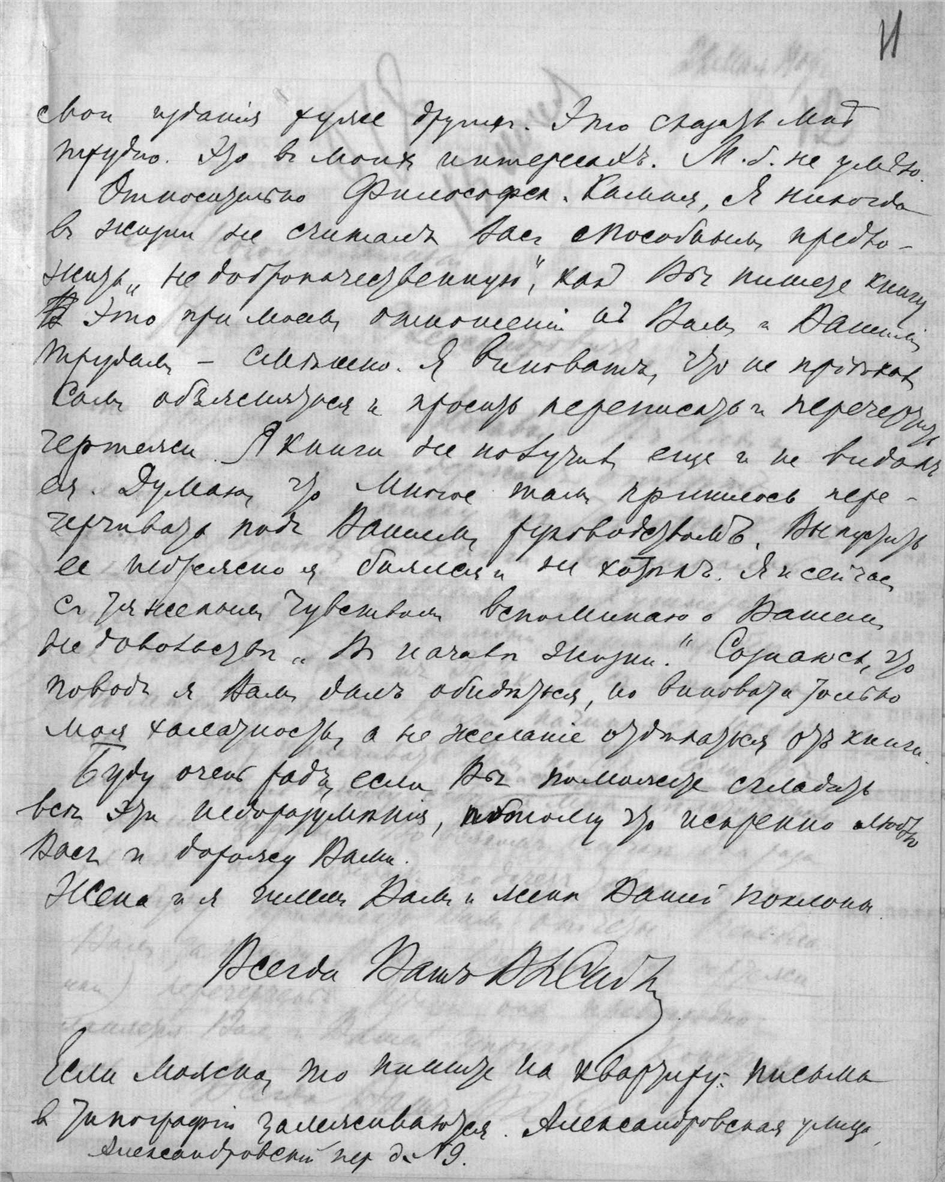 11
мои изданія хуже другихъ. Это сказать мнѣ
трудно. Это в моихъ интересахъ. М.б. не умѣю.
Относительно Философск. Камня, Я никогда
въ жизни не считалъ Васъ способнымъ предло-
жить „недоброкачественную", какъ Вы пишете книгу
Это при моемъ отношеніи къ Вамъ и Вашимъ
трудамъ – смѣшно. Я виноватъ, что не
самъ объясниться и просить переписать и перечертить
чертежи. Я книги не получивъ еще и не видалъ
ея. Думаю, что многое тамъ пришлось пере-
черчивать подъ Вашимъ руководствомъ. Выпустить
ее я боялся и не хотѣлъ. Я и сейчас
с тяжелымъ чувствомъ вспоминаю о Вашемъ
недовольствѣ „Въ началѣ жизни." Сознаюсь, что
поводъ я Вамъ далъ обидѣться, но виновата только
моя халатность, а не желаніе отдѣлаться отъ книги.
Буду очень радъ, если Вы поможете сгладить
всѣ эти недоразумѣнія, потому что искренно люблю
Васъ и дорожу Вами.
Жена и я шлемъ Вамъ и женѣ Вашей поклоны.
Всегда Вашъ
Если можно, то пишите на квартиру: письма
в типографіи залеживаются. Александровская улица,
Александровскій пер д. № 9.